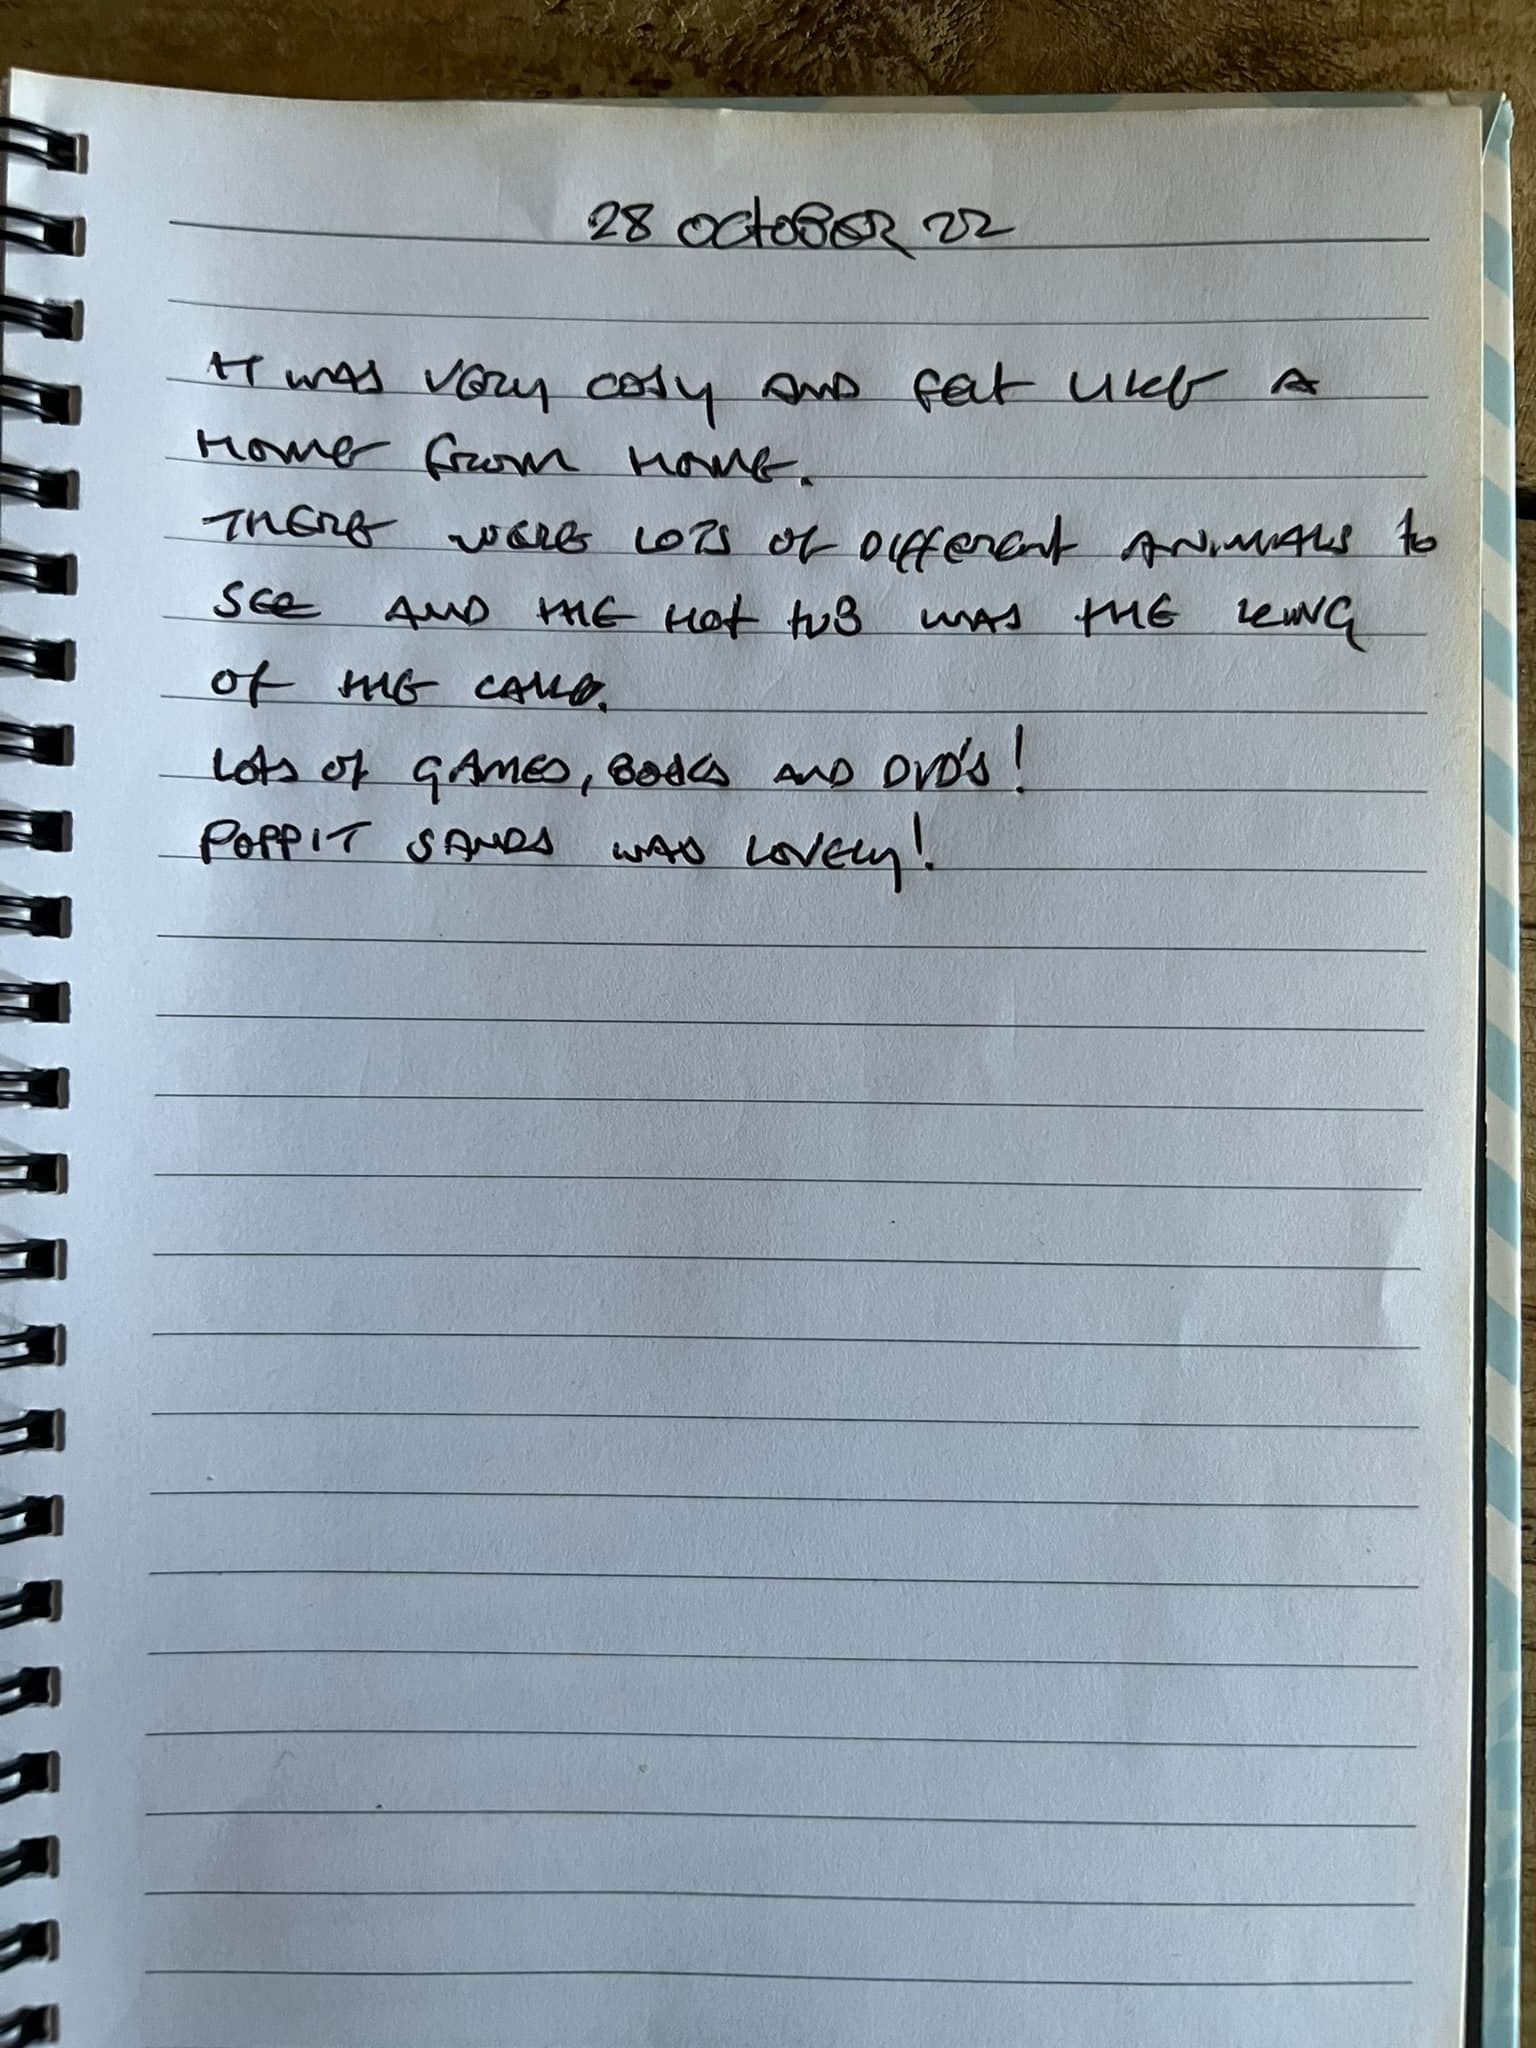 28 OCTOBER 22
IT WAS VERY COSY AND FELT LIKE A
HOME FROM HOME.
THERE WERE LOTS OF DIFFERENT ANIMALS to
SEE AND THE HOT TUB WAS THE ICING
OF THE CAKE.
LOTS OF GAMES, BOOKS AND DVD'S!
POPPIT SANDS WAS LOVELY!